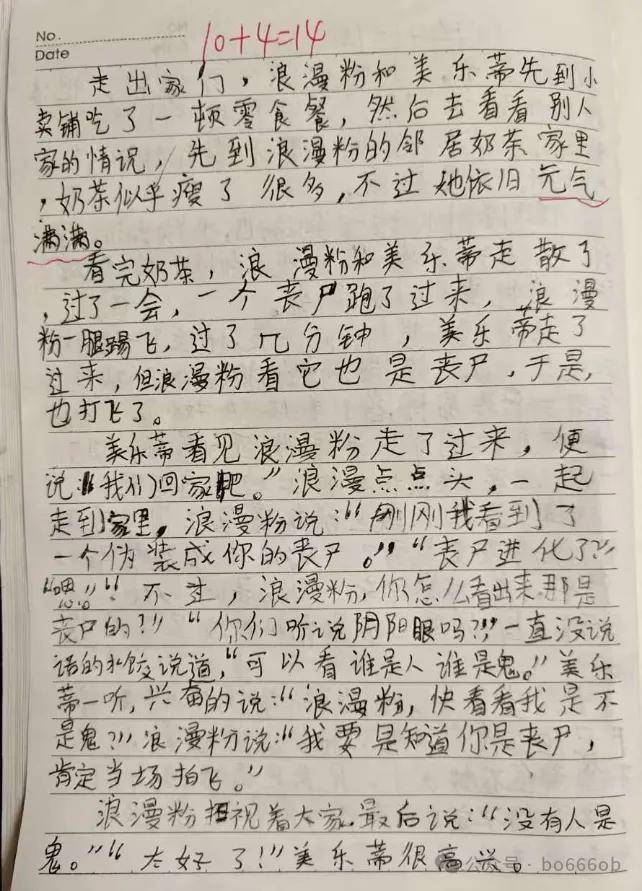 No.
Date
10+4=14
走出家门，浪漫粉和美乐蒂先到小
卖铺吃了一顿零食餐，然后去看看别人
家的情况，先到浪漫粉的邻居奶茶家里
，奶茶似乎瘦了很多，不过她依旧元气
满满。
看完奶茶，浪漫粉和美乐蒂走散了
，过了一会，一个丧尸跑了过来，浪漫
粉一腿踢飞，过了几分钟，美乐蒂走了
过来，但浪漫粉看它也是丧尸，于是，
也打飞了。
美乐蒂看见浪漫粉走了过来，便
说：“我们回家吧。”浪漫点点头，一起
走到家里，浪漫粉说：“刚刚我看到了
一个伪装成你的丧尸。”“丧尸进化了？”
“嗯。”“不过，浪漫粉，你怎么看出来那是
丧尸的？”“你们听说阴阳眼吗？”一直没说
话的水饺说道，“可以看谁是人谁是鬼。”美乐
蒂一听，兴奋的说：“浪漫粉，快看看我是不
是鬼？”浪漫粉说：“我要是知道你是丧尸，
肯定当场拍飞。”
浪漫粉扫视着大家，最后说：“没有人是
鬼。”“太好了！”美乐蒂很高兴。
公众号 · bo666ob